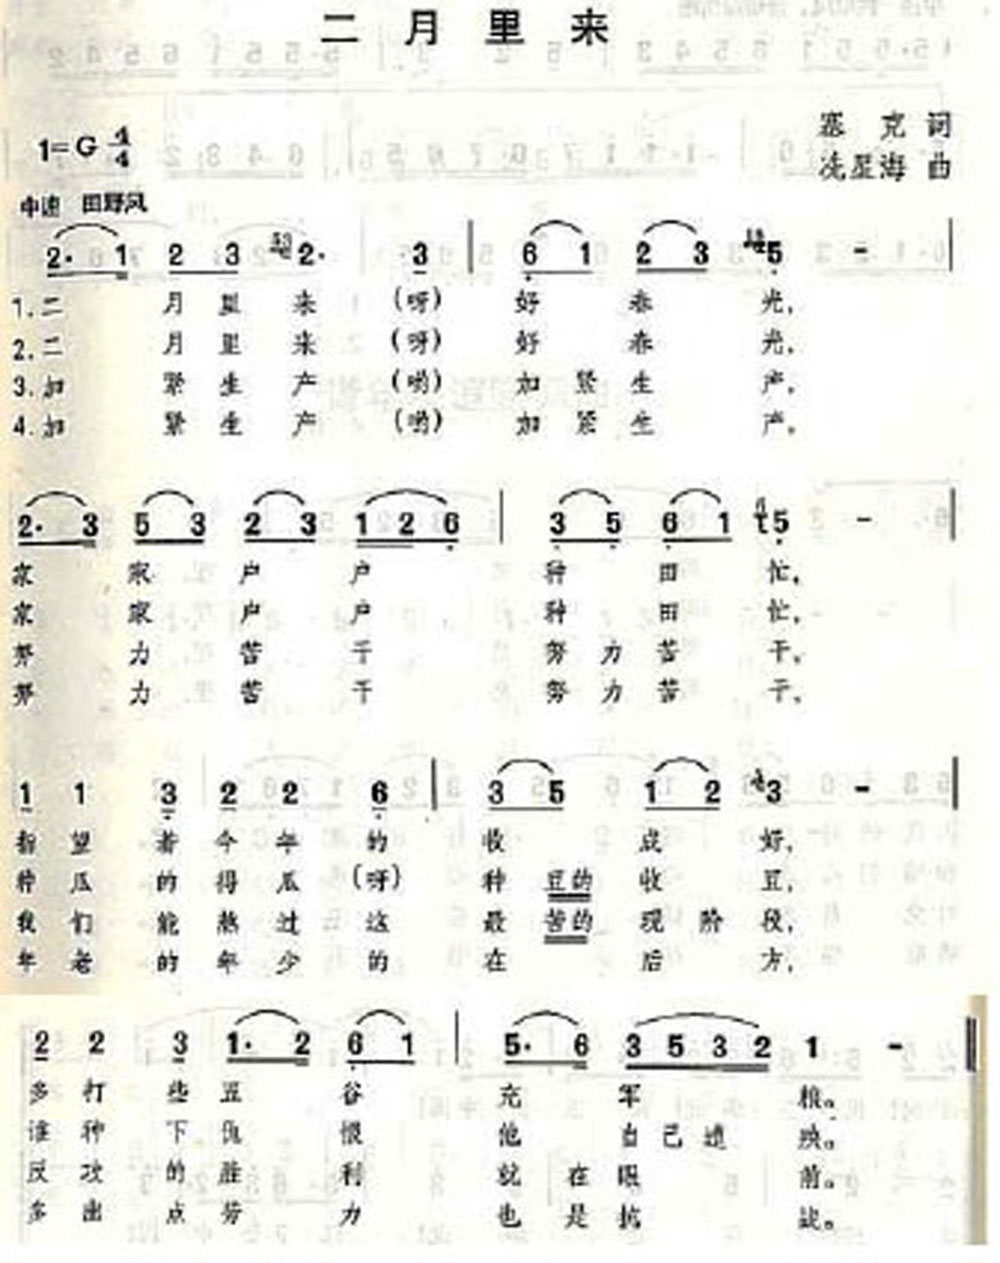 二月里来
塞克词
1=G 4/4
冼星海曲
中速 田野风
2· 1 2 3 2· 3 | 6 1 2 3 5 - |
1.二 月 里 来 (呀) 好 春 光,
2.二 月 里 来 (呀) 好 春 光,
3.加 紧 生 产 (哟) 加 紧 生 产,
4.加 紧 生 产 (哟) 加 紧 生 产,
2· 3 5 3 2 3 1 2 6 | 3 5 6 1 5 - |
家 家 户 户 种 田 忙,
家 家 户 户 种 田 忙,
努 力 苦 干 努 力 苦 干,
努 力 苦 干 努 力 苦 干,
1 1 3 2 2 6 | 3 5 1 2 3 - |
指 望 着 今 年 的 收 成 好,
种 瓜 的 得 瓜 (呀) 种 豆的 收 豆,
我 们 能 熬 过 这 最 苦的 现 阶 段,
年 老 的 年 少 的 在 后 方,
2 2 3 1· 2 6 1 | 5· 6 3 5 3 2 1 - ‖
多 打 些 豆 谷 充 军 粮。
谁 种 下 仇 恨 他 自 己 遭 殃。
反 攻 的 胜 利 就 在 眼 前。
多 出 点 劳 力 也 是 抗 战。